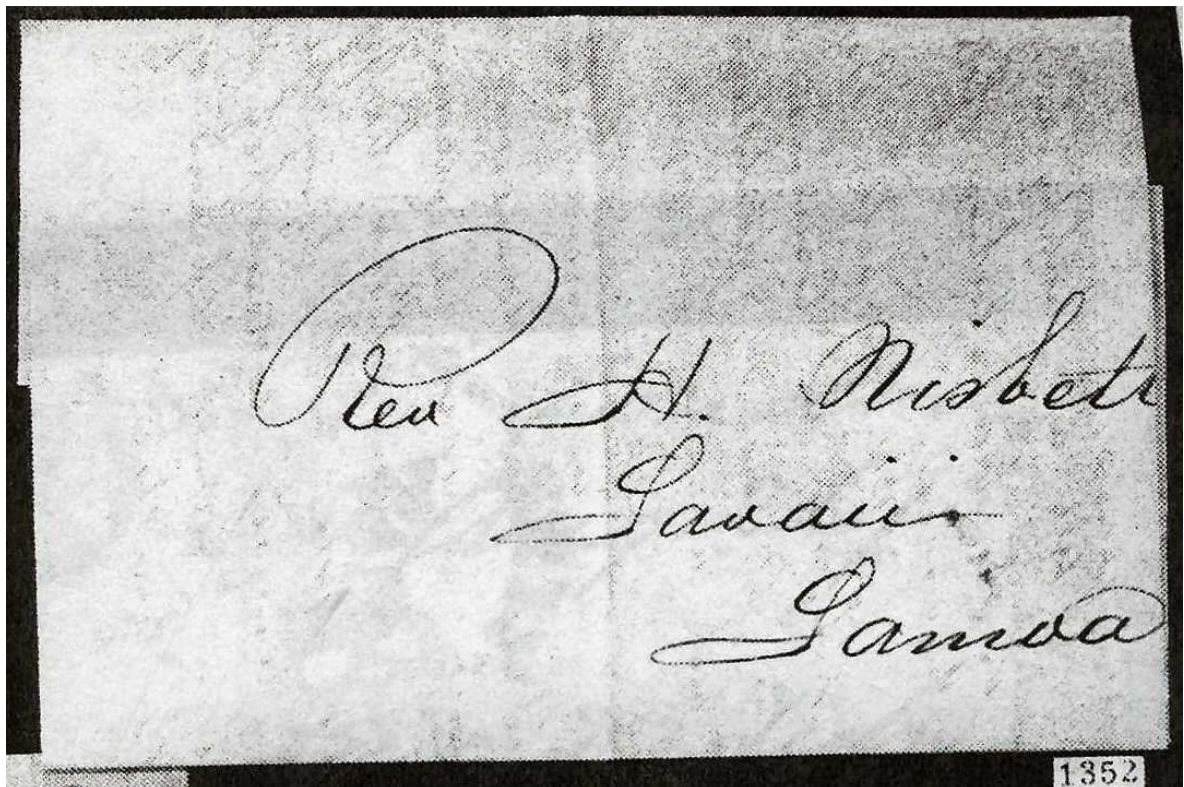 Rev H. Nisbett
Savaii
Samoa
1352